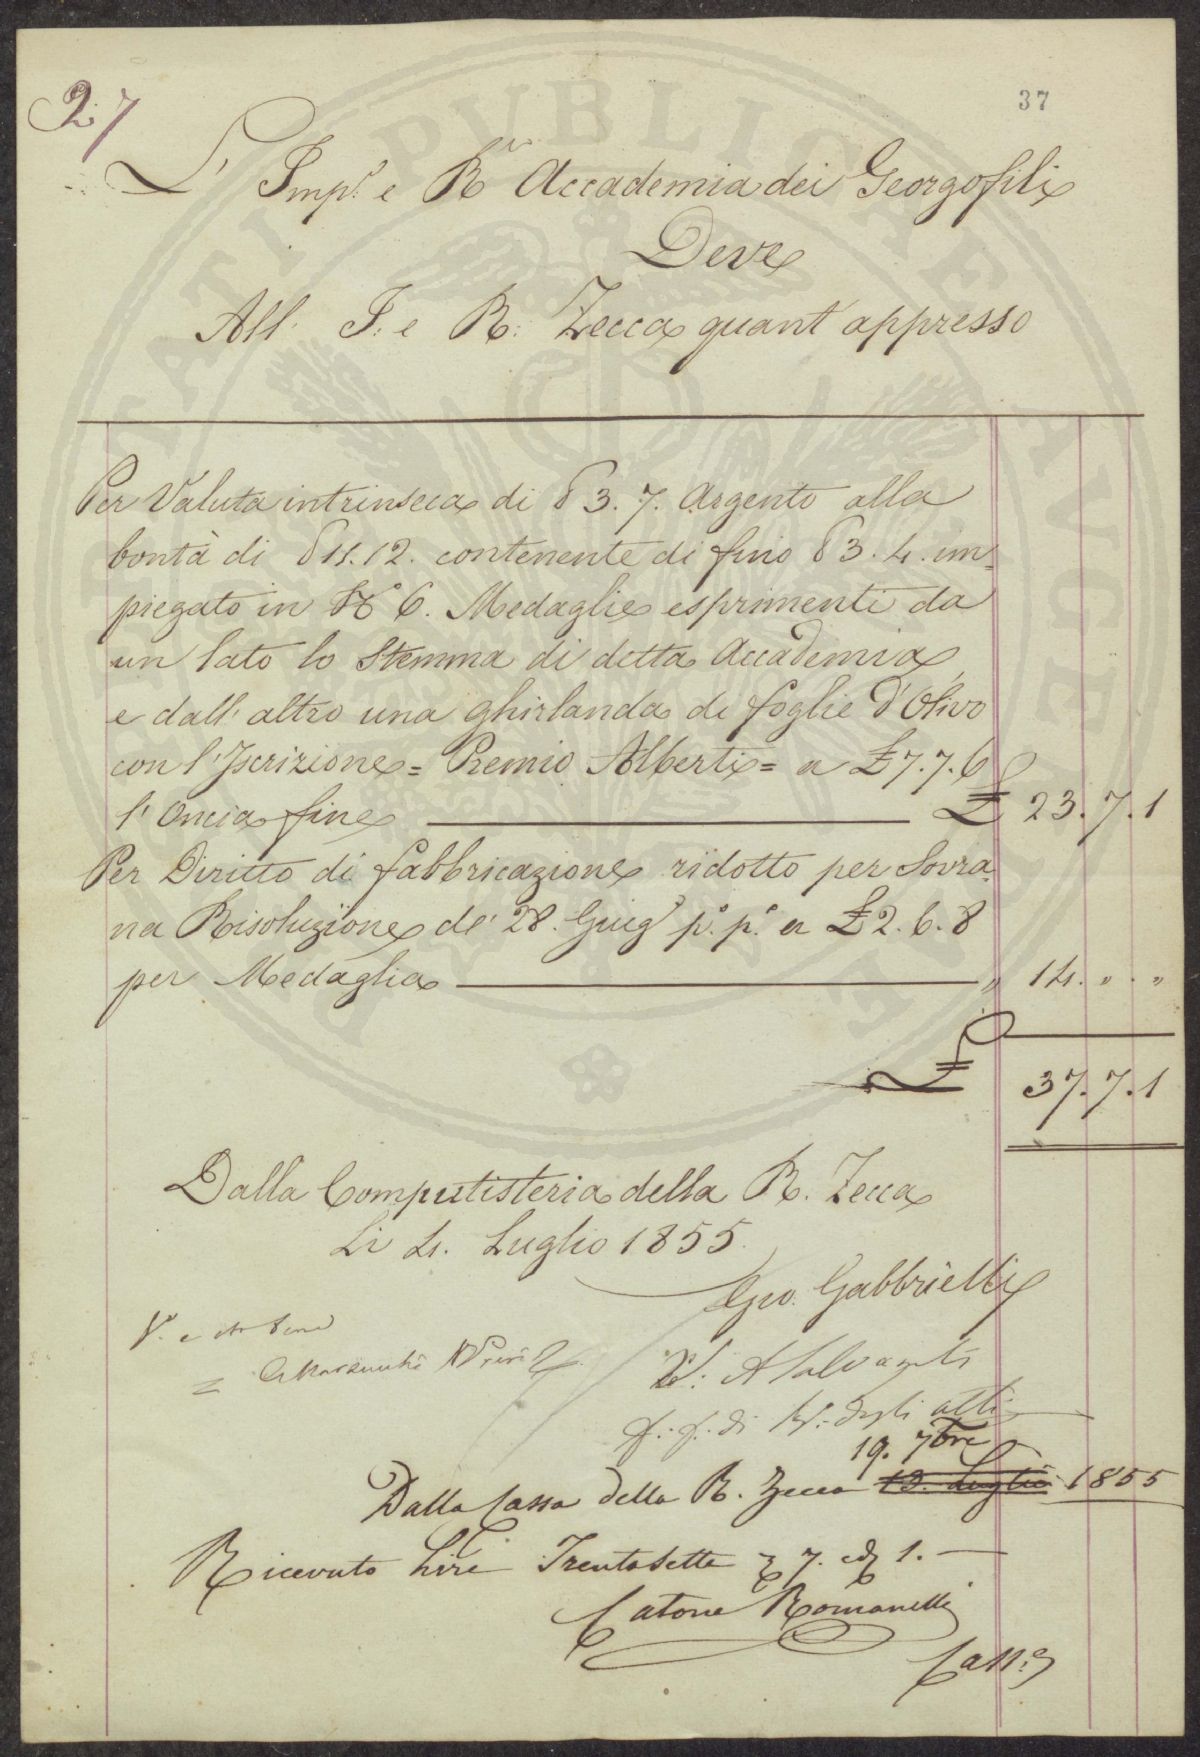 27
37
L' Imp.e e R.e Accademia dei Georgofili
Deve
All' I. e R. Zecca quant' appresso
Per Valuta intrinseca di δ 3. 7. Argento alla
bontà di δ 11. 12. contenente di fino δ 3. 4. im=
piegato in N.o 6. Medaglie esprimenti da
un lato lo Stemma di detta Accademia,
e dall' altro una ghirlanda di foglie d'Olivo
con l'Iscrizione = Premio Alberti = a £ 7. 7. 6
l' Oncia fine £ 23. 7. 1
Per Diritto di fabbricazione ridotto per Sovra=
na Risoluzione de' 28. Giug.o p.o p.o a £ 2. 6. 8
per Medaglia " 14. " . "
£ 37. 7. 1
Dalla Computisteria della R. Zecca
Li 4. Luglio 1855.
Gio. Gabbrielli
V.o e
V.o: A Salvagnoli
f.: f. di S.: degli atti
19. 7bre
Dalla Cassa della R. Zecca 19. Luglio 1855
Ricevuto Lire Trentasette 7. 1.
Catone Romanelli
Cass.e
PUBLICAE